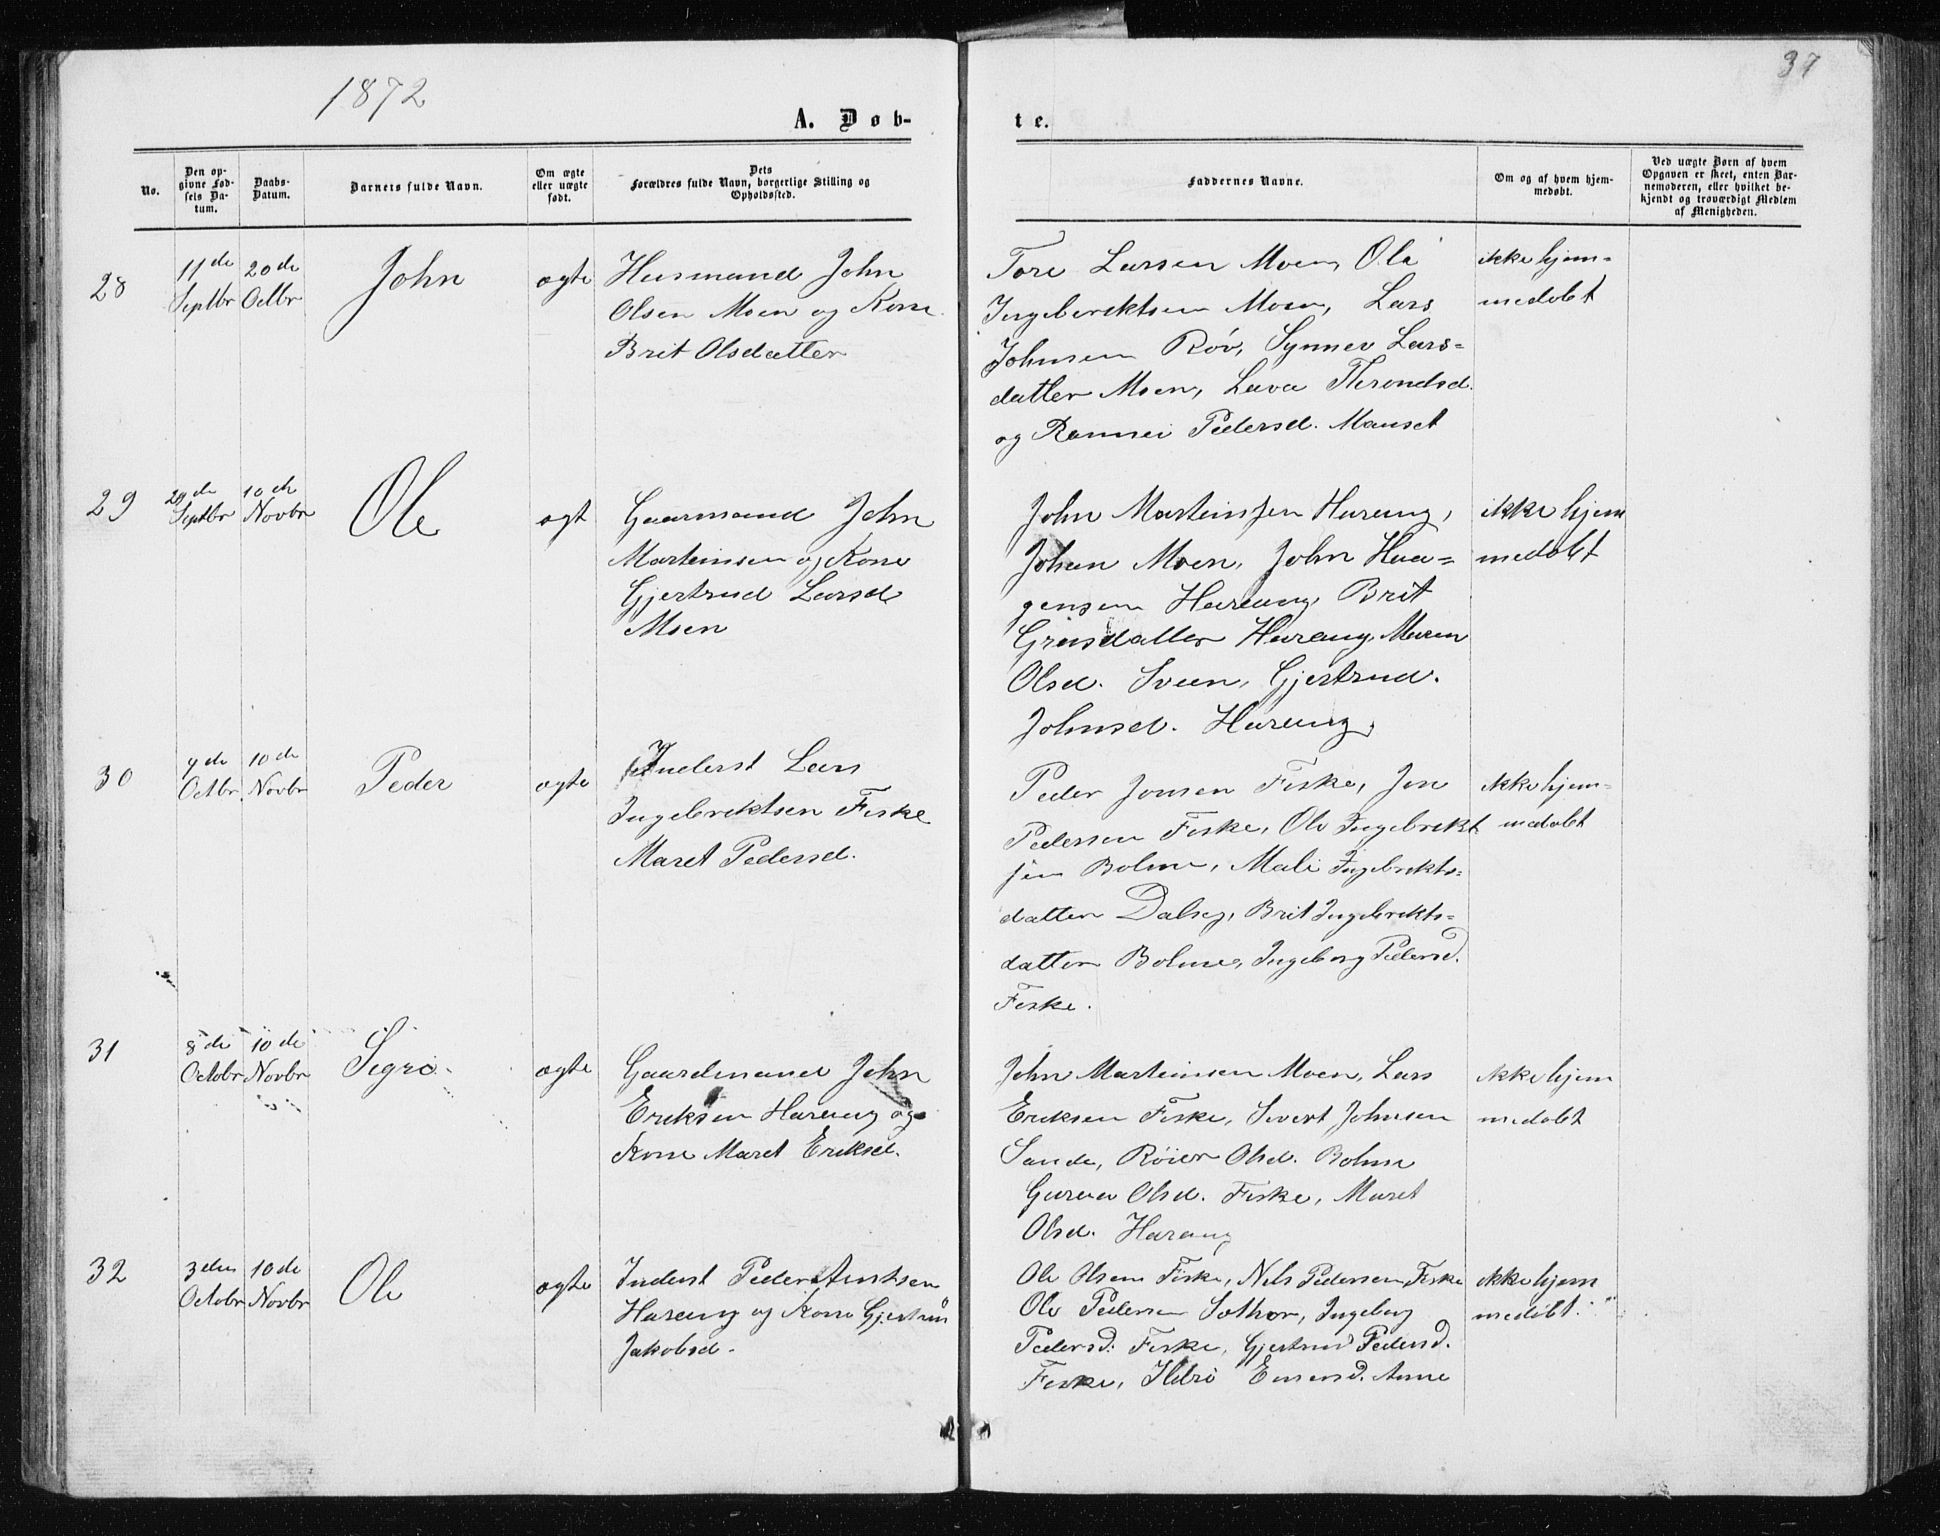 1872
37
A. Døb-
te.
No.
Den op-
givne Fød-
sels Da-
tum.
Daabs-
Datum.
Barnets fulde Navn.
Om ægte
eller uægte
født.
Dets
Forældres fulde Navn, borgerlige Stilling og
Opholdssted.
Faddernes Navne.
Om og af hvem hjem-
medøbt.
Ved uægte Børn af hvem
Opgaven er skeet, enten Bar-
nemoderen, eller hvilket be-
kjendt og troværdigt Medlem
af Menigheden.
28
11de
Septbr
20de
Octbr
John
ægte
Husmand John
Olsen Moen og Kone
Brit Olsdatter
Tore Larsen Moen, Ole
Ingebrektsen Moen, Lars
Johnsen Røv, Synnev Lars-
datter Moen, Throndsd.
og Rannei Pedersd. Mauset
ikke hjem-
medøbt
29
29de
Septbr
10de
Novbr
Ole
ægt
Gaarmand John
Marteinsen og Kone
Gjertrud Larsd
Moen
John Marteinsen Harang,
Johan Moen, John Haa-
gensen Harang, Brit
Harang, Maren
Olsd. Sveen, Gjertrud.
Johnsd. Harang,
ikke hjem
medøbt
30
9de
Octbr.
10de
Novbr
Peder
ægte
Inderst Lars
Ingebrektsen Fiske
Maret Pedersd.
Peder Jonsen Fiske, Jon
Pedersen Fiske, Ole Ingebrekt
sen Bolme, Mali Ingebrekts-
datter Dalseg, Brit Ingebrekts-
datter Bolme, Ingeborg Pedersd.
Fiske.
ikke hjem-
medøbt
31
8de
Octobr
10de
Novbr
Sigrø
ægte
Gaardmand John
Eriksen Harang og
Kone Maret Eriksd.
John Marteinsen Moen, Lars
Eriksen Fiske, Sivert Johnsen
Sande, Olsd. Bolme
Gurua Olsd. Fiske, Maret
Olsd. Harang
ikke hjem
medøbt
32
3den
Octobr
10de
Novbr
Ole
ægte
Inderst Peder Arntsen
Harang og Kone Gjertrud
Jakobsd.
Ole Olsen Fiske, Nils Pedersen Fiske
Ole Pedersen Ingeborg
Pedersd. Fiske, Gjertrud Pedersd.
Fiske, Ildri Anne
ikke hjem
medøbt.